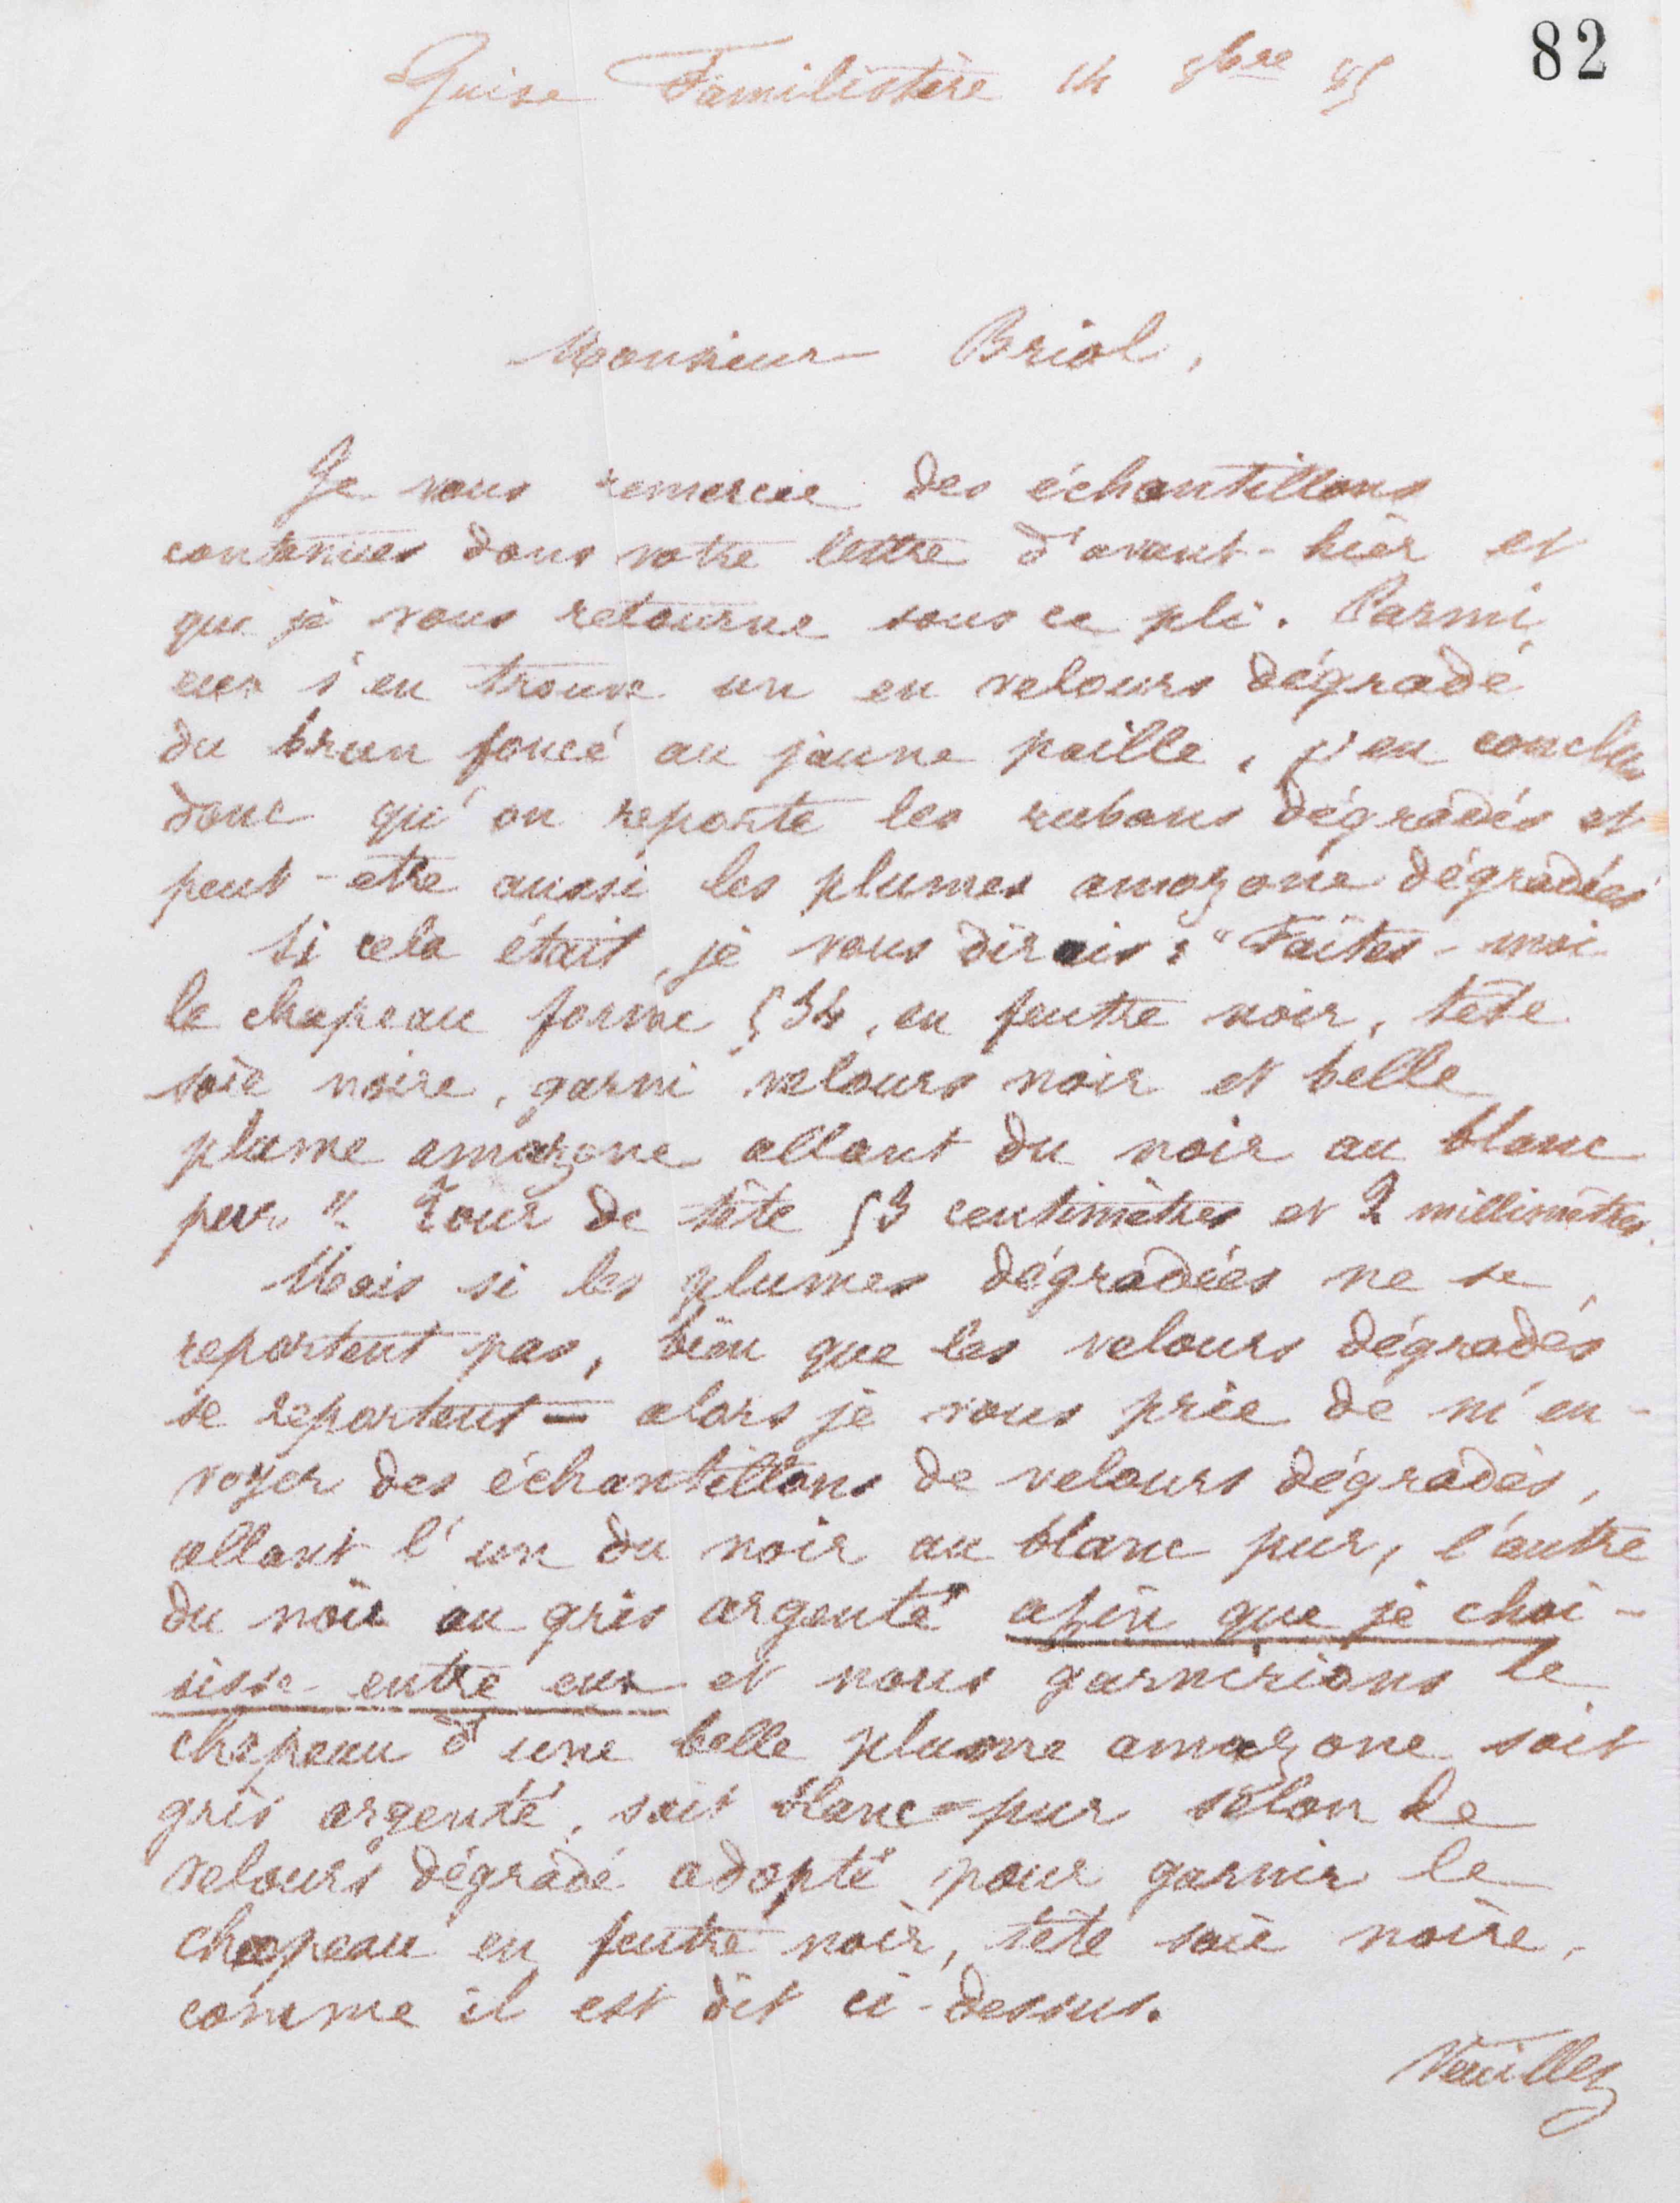 82
Guise Familistère 14 8bre 95
Monsieur Briol,
Je vous remercie des échantillons
contenues dans votre lettre d'avant-hier et
que je vous retourne sous ce pli. Parmi
eux s'en trouve un en velours dégradé
du brun foncé au jaune paille, j'en conclus
donc qu'on reporte les rubans dégradés et
peut-etre aussi les plumes amazone dégradées
Si cela était, je vous dirais : "Faites-moi
le chapeau forme 534, en feutre noir, tête
soie noire, garni velours noir et belle
plume amazone allant du noir au blanc
pur". Tour de tête 53 centimètres et 2 millimètres.
Mais si les plumes dégradées ne se
reportent pas, bien que les velours dégradés
se reportent — alors je vous prie de m'en-
voyer des échantillons de velours dégradés,
allant l'un du noir au blanc pur, l'autre
du noir au gris argenté afin que je choi-
sisse entre eux et nous garnirions le
chapeau d'une belle plume amazone soit
gris argenté, soit blanc-pur selon le
velours dégradé adopté pour garnir le
chapeau en feutre noir, tête soie noire,
comme il est dit ci-dessus.
Veuillez